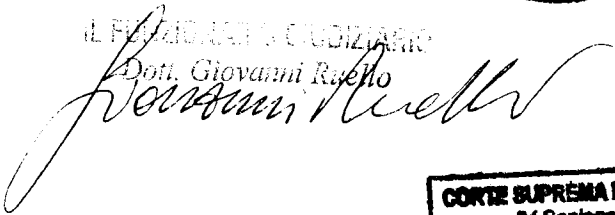 IL FUNZIONARIO GIUDIZIARIO
Dott. Giovanni Ruello
Giovanni Ruello
CORTE SUPREMA